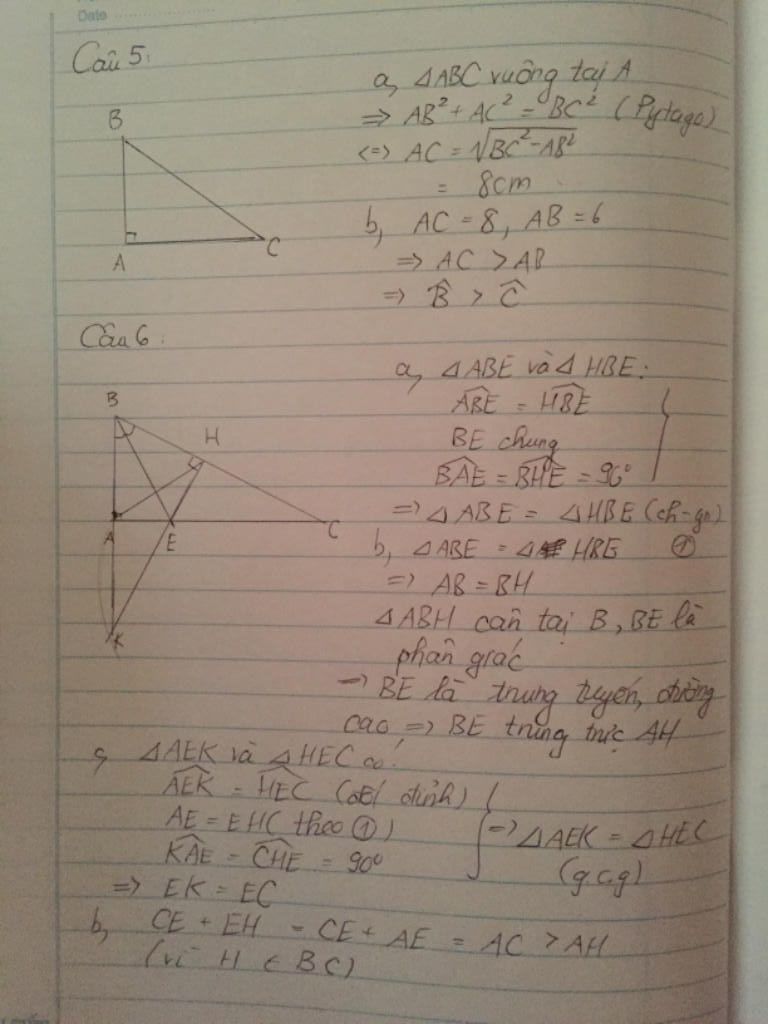 Date
Câu 5:
B
A
C
a, ΔABC vuông tại A
=> AB² + AC² = BC² (Pytago)
<=> AC = √BC² - AB²
= 8cm
b, AC = 8, AB = 6
=> AC > AB
=> B̂ > Ĉ
Câu 6:
B
H
A
E
C
K
a, ΔABE và ΔHBE:
ABE = HBE
BE chung
BAE = BHE = 90°
=> ΔABE = ΔHBE (ch-gn)
b, ΔABE = Δ HBE ①
=> AB = BH
ΔABH cân tại B, BE là
phân giác
=> BE là trung tuyến, đường
cao => BE trung trực AH
c, ΔAEK và ΔHEC có:
AEK = HEC (đối đỉnh)
AE = EH (theo ①)
KAE = CHE = 90°
=> ΔAEK = ΔHEC
(g.c.g)
=> EK = EC
b, CE + EH = CE + AE = AC > AH
(vì H ∈ BC)